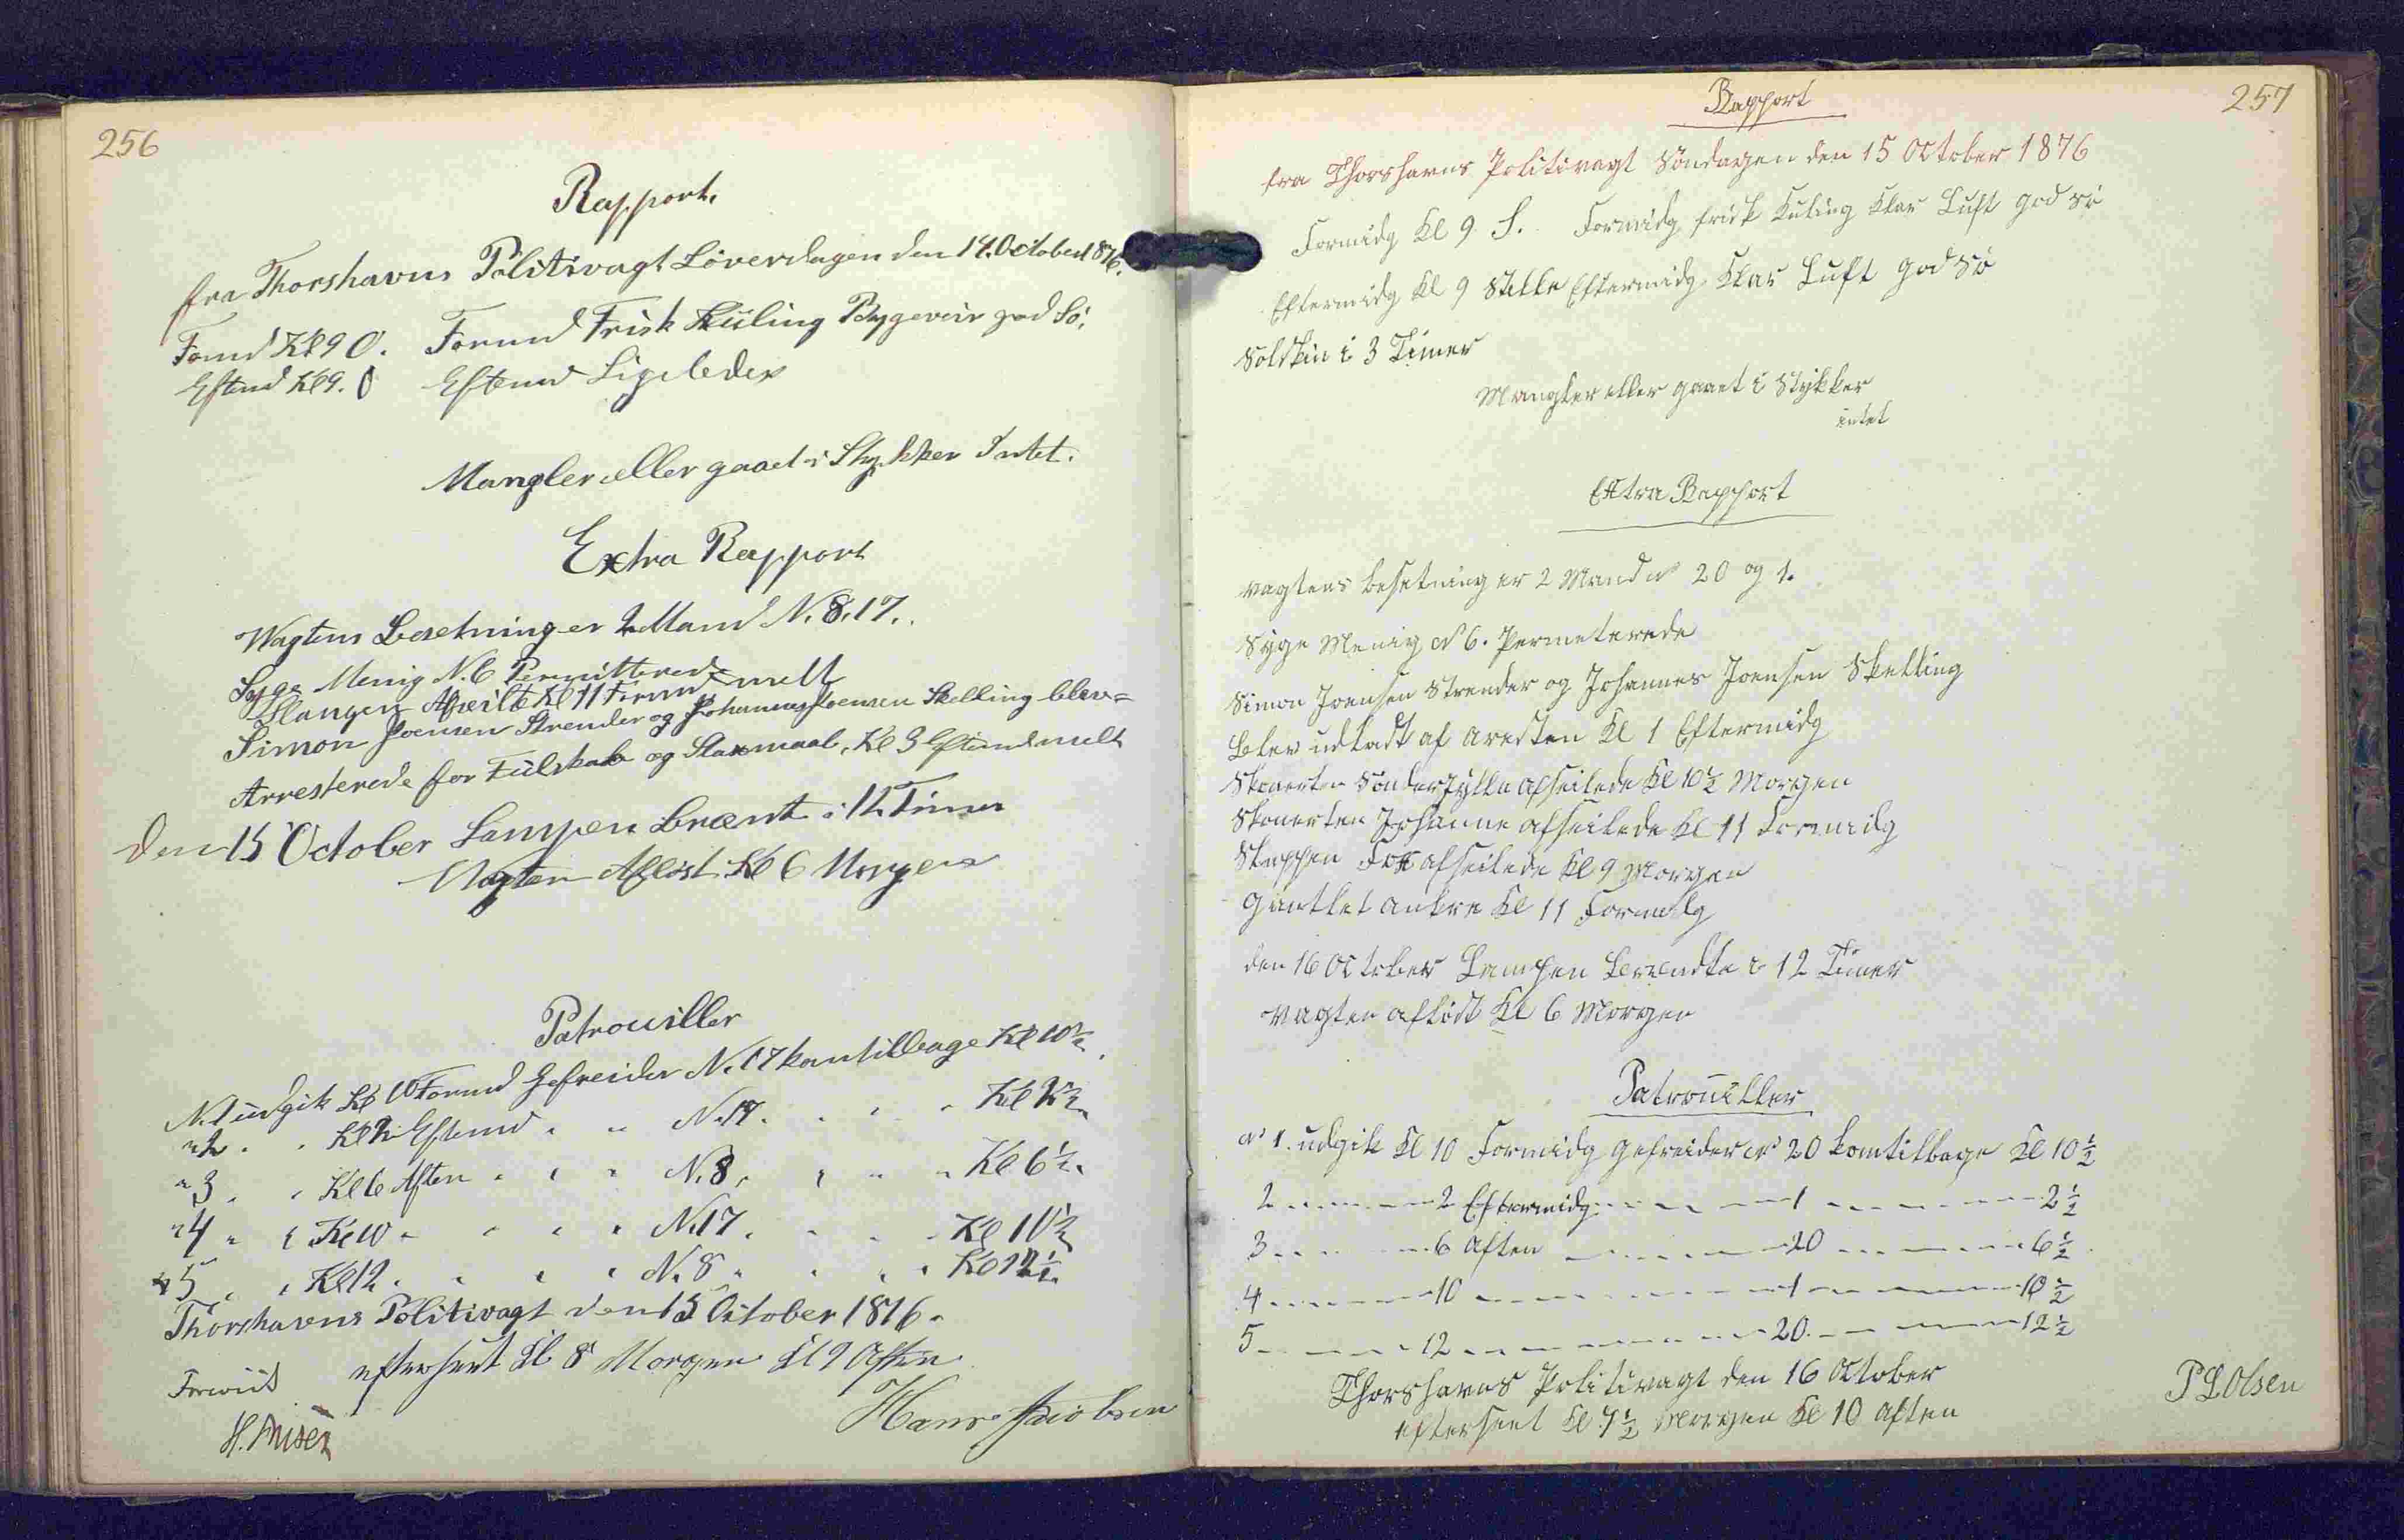 256
Rapport.
fra Thorshavns Politivagt Löverdagen den 14. October 1876.
Formd Kl 9 O. Formd Frisk Kuling Bygeveir god Sö.
Eftmd Kl 9. O Eftmd Ligeledes
Mangler eller gaaet i Stykker Intet.
Extra Rapport
Wagtens Besetning er 2 Mand N. 8. 17.
Syge Menig N. 6 Permitterede
Slangen Afseilte Kl 11 Formd
Simon Joensen Strender og Johannes Joensen Skelling blev
Arresterede for Fulskab og Slaxmaal, Kl 3 Eftmd
den 15 October Lampen brænt i 12 Timer
Vagten Aflöst Kl 6 Morgen
Patrouiller
N. 1 udgik Kl 10 Formd Gefreider N. 17 kom tilbage Kl 10½
" 2 " " Kl 2 Eftmd " " N. 17 " " " Kl 2½
" 3 " " Kl 6 Aften " " " N. 8 " " " Kl 6½
" 4 " " Kl 10 " " " " N. 17 " " " Kl 10½
" 5 " " Kl 12 " " " " N. 8 " " " Kl 12½
Thorshavns Politivagt den 15 October 1876.
efterseet Kl 8 Morgen Kl 9 Aften
Hans Jacobsen
257
Rapport
fra Thorshavns Politivagt Söndagen den 15 October 1876
Formidg Kl 9 S. Formidg frisk Kuling Klar Luft god Sö
Eftermidg Kl 9 Stille Eftermidg Klar Luft god Sö
Solskin i 3 Timer
Mangler eller gaaet i Stykker
intet
Extra Rapport
Vagtens besetning er 2 Mand No 20 og 1.
Syge Menig No 6. Permeterede
Simon Joensen Strender og Johannes Joensen Skelling
blev udladt af Aresten Kl 1 Eftermidg
Skonerten Sönderjylle afseilede Kl 10½ Morgen
Skonerten Johanne afseilede Kl 11 Formidg
Sluppen Fox afseilede Kl 9 Morgen
Kl 11 Formidg
den 16 October Lampen brændte i 12 Timer
Vagten aflöst Kl 6 Morgen
Patrouiller
No 1. udgik Kl 10 Formidg Gefreider No 20 kom tilbage Kl 10½
2 - - - - - 2 Eftermidg - - - - 1 - - - - - 2½
3 - - - - - 6 Aften - - - - - 20 - - - - - 6½
4 - - - - - 10 - - - - - - - 1 - - - - - 10½
5 - - - - - 12 - - - - - - - 20 - - - - - 12½
Thorshavns Politivagt den 16 October
efterseet Kl 7½ Morgen Kl 10 Aften
P L Olsen